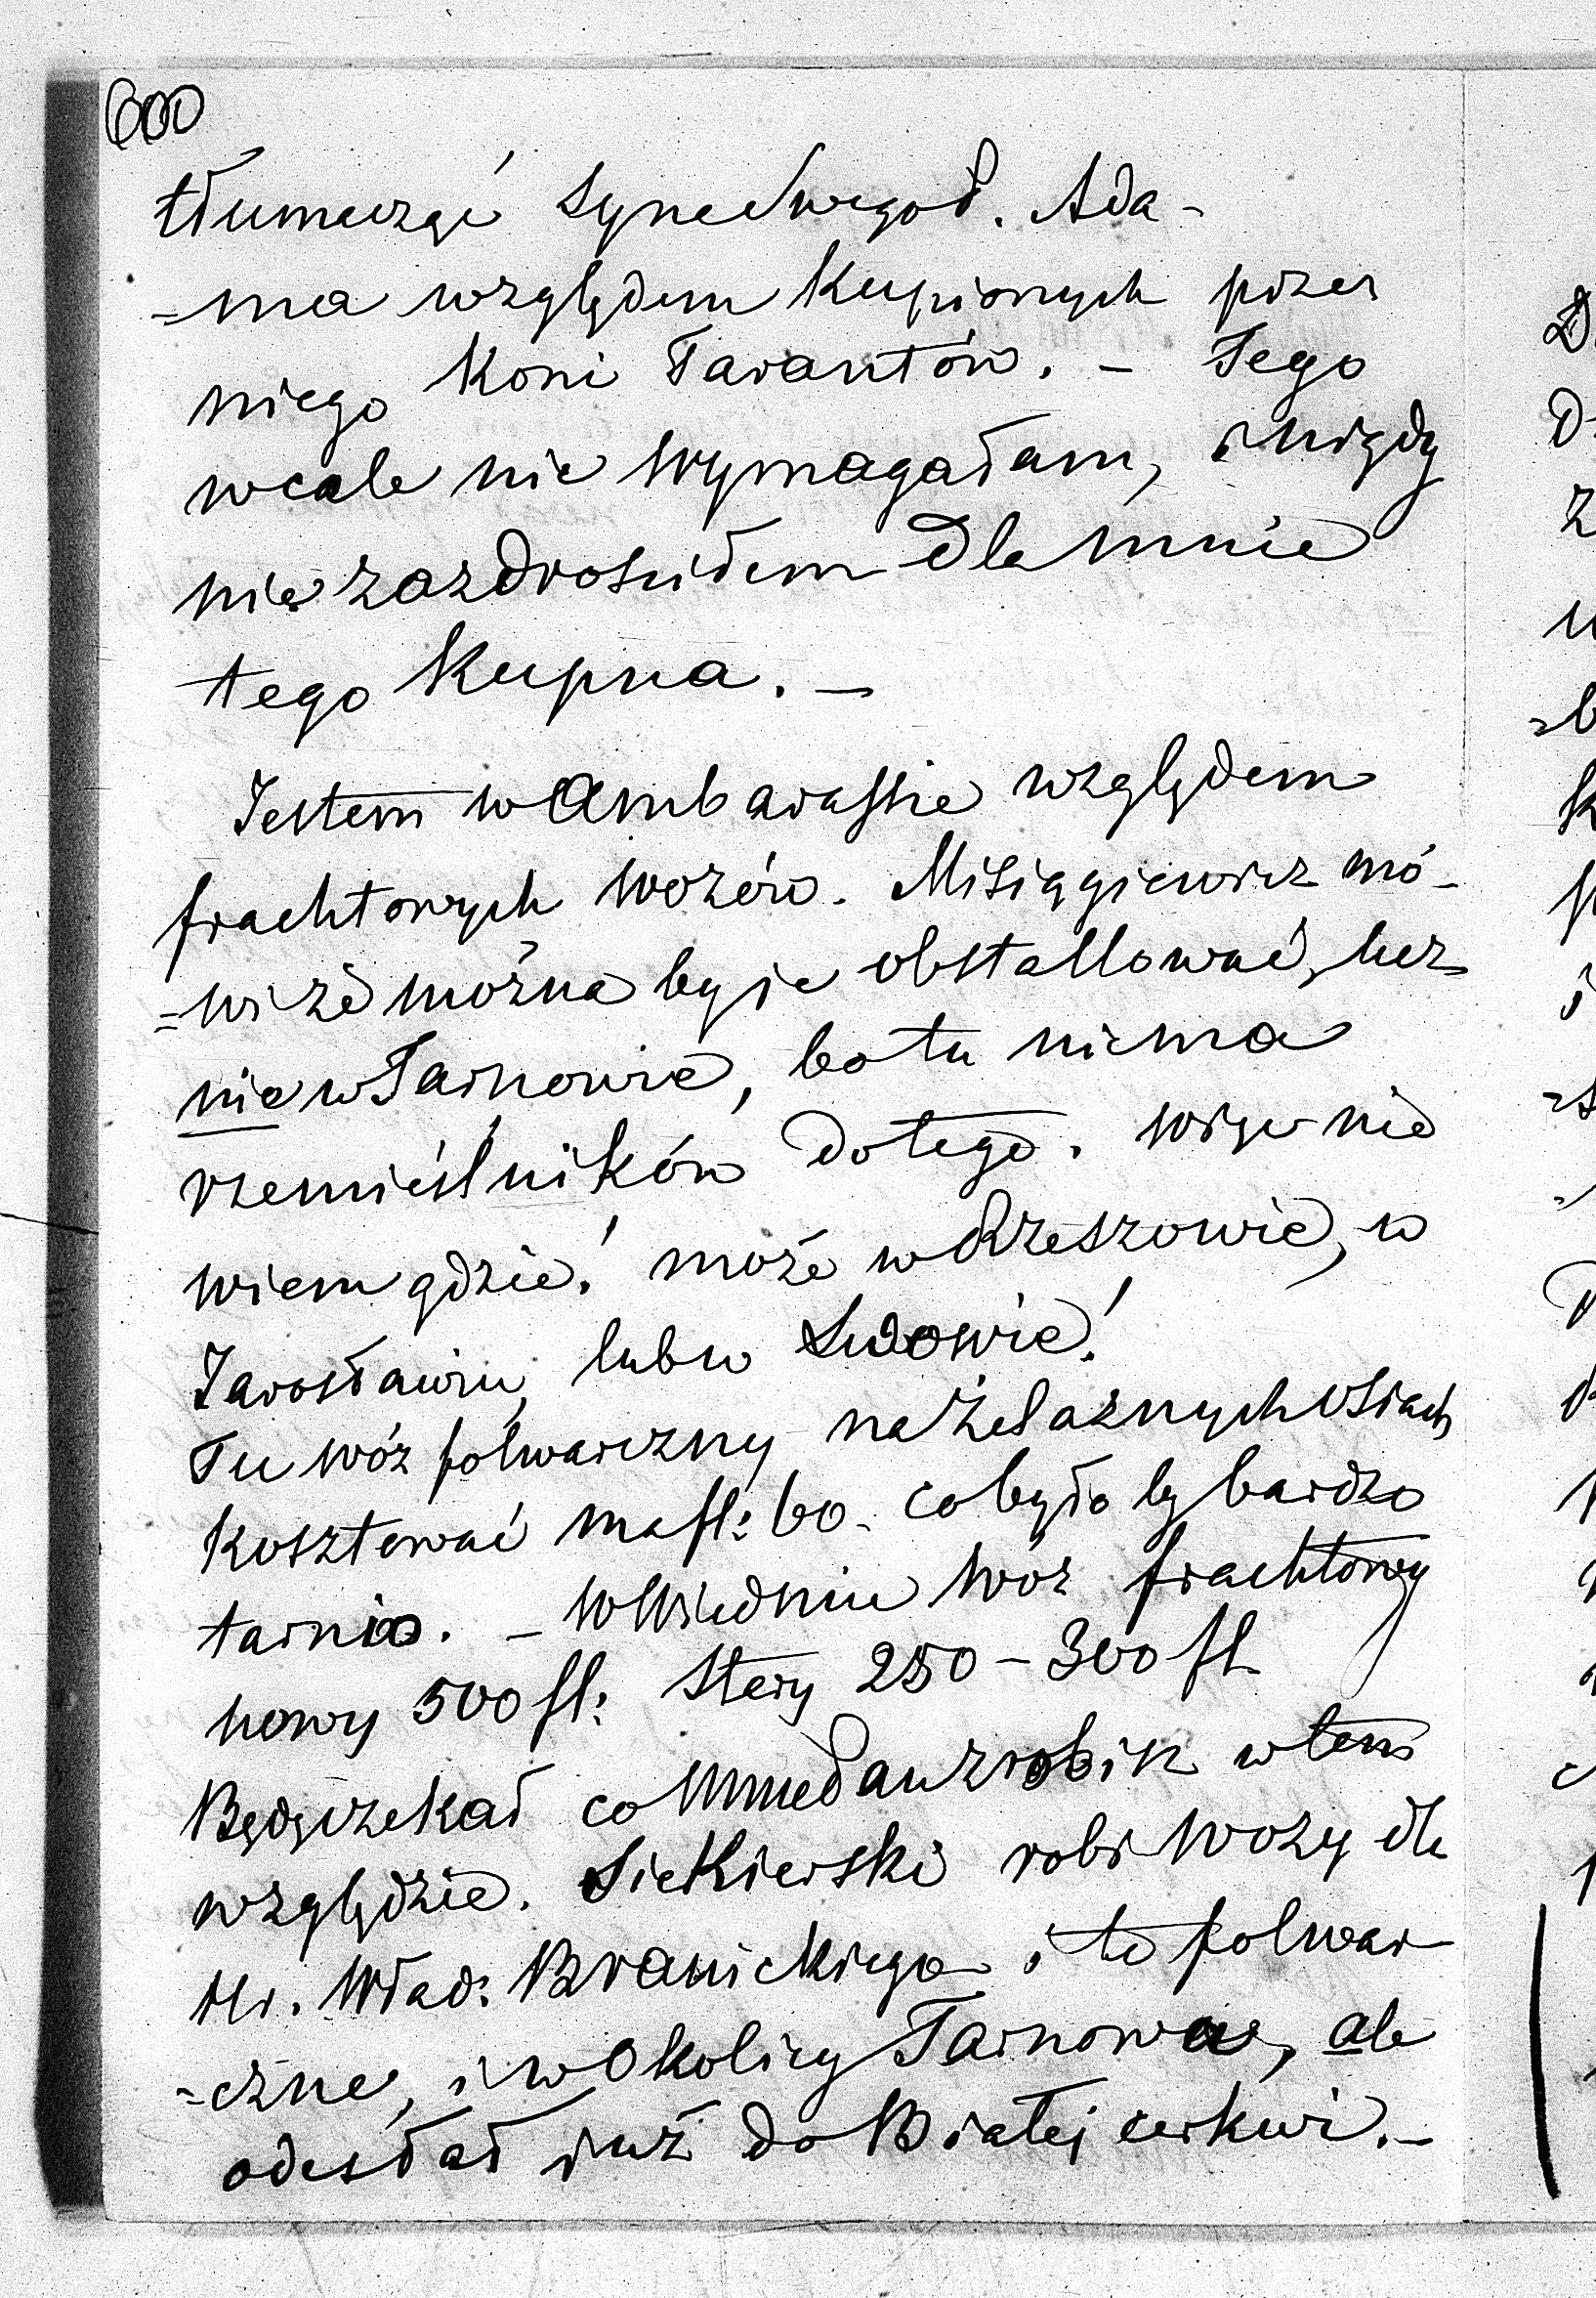 600
tłumaczyć syna swego P. Ada-
=ma względem kupionych przez
niego koni Tarantów. – Tego
wcale nie wymagałam, i nigdy
nie zazdrościłem dla mnie
tego kupna. –
Jestem w Ambarassie względem
frachtowych wozów. Misiągiewicz mó-
=wi że można by je obstallować, lecz
nie w Tarnowie, bo tu niema
rzemieślników do tego. więc nie
wiem gdzie! może w Rzeszowie, w
Jarosławiu, lub w Lwowie!
Tu wóz folwarczny na żelaznych osiach
kosztować ma fl: 60. co byłoby bardzo
tanio. – w Wiedniu wóz frachtowy
nowy 500 fl: stery 250 – 300 fl
Będę czekał co zrobić w tem
względzie. Siekierski robi wozy dla
Hr. Wład: Branickiego i to folwar
=czne, i w okolicy Tarnowa, ale
odesłał już do Białej cerkwi. –